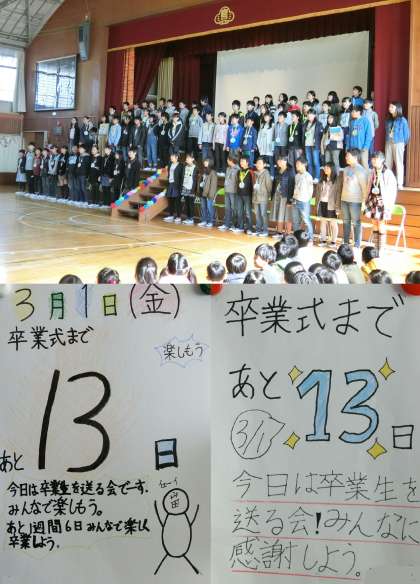 3月1日(金)
卒業式まで
楽しもう
あと13日
今日は卒業生を送る会です。
みんなで楽しもう。
あと1週間6日みんなで楽しく
卒業しよう。
卒業式まで
あと13日
3/1
今日は卒業生を
送る会!みんなに
感謝しよう。